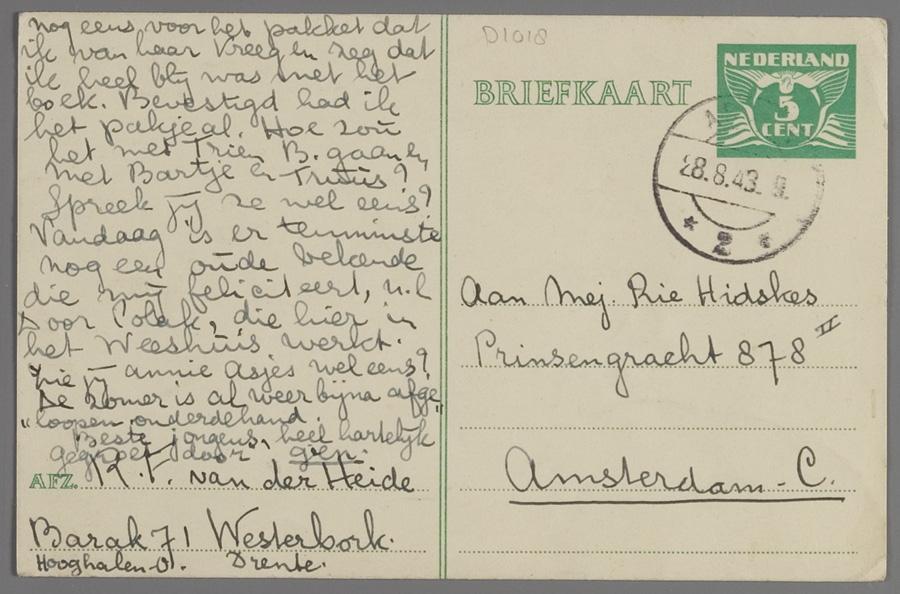 nog eens voor het pakket dat
ik van haar kreeg en zeg dat
ik heel blij was met het
boek. Bevestigd had ik
het pakje al. Hoe zou
het met Trien B. gaan en
met Bartje en Truus?
Spreek jij ze wel eens?
Vandaag is er tenminste
nog een oude bekende
die mij feliciteert, n.l
Door Polak, die hier in
het Weeshuis werkt.
Zie jij annie Asjes wel eens?
De zomer is al weer bijna afge
"loopen onderdehand.
Beste jongens, heel hartelijk
gegroet door
AFZ. R. F. van der Heide
Barak 71 Westerbork.
Hooghalen-O. Drente.
D1018
BRIEFKAART
NEDERLAND
5
CENT
28.8.43.
2
Aan Mej. Rie Hidskes
Prinsengracht 878 II
Amsterdam-C.